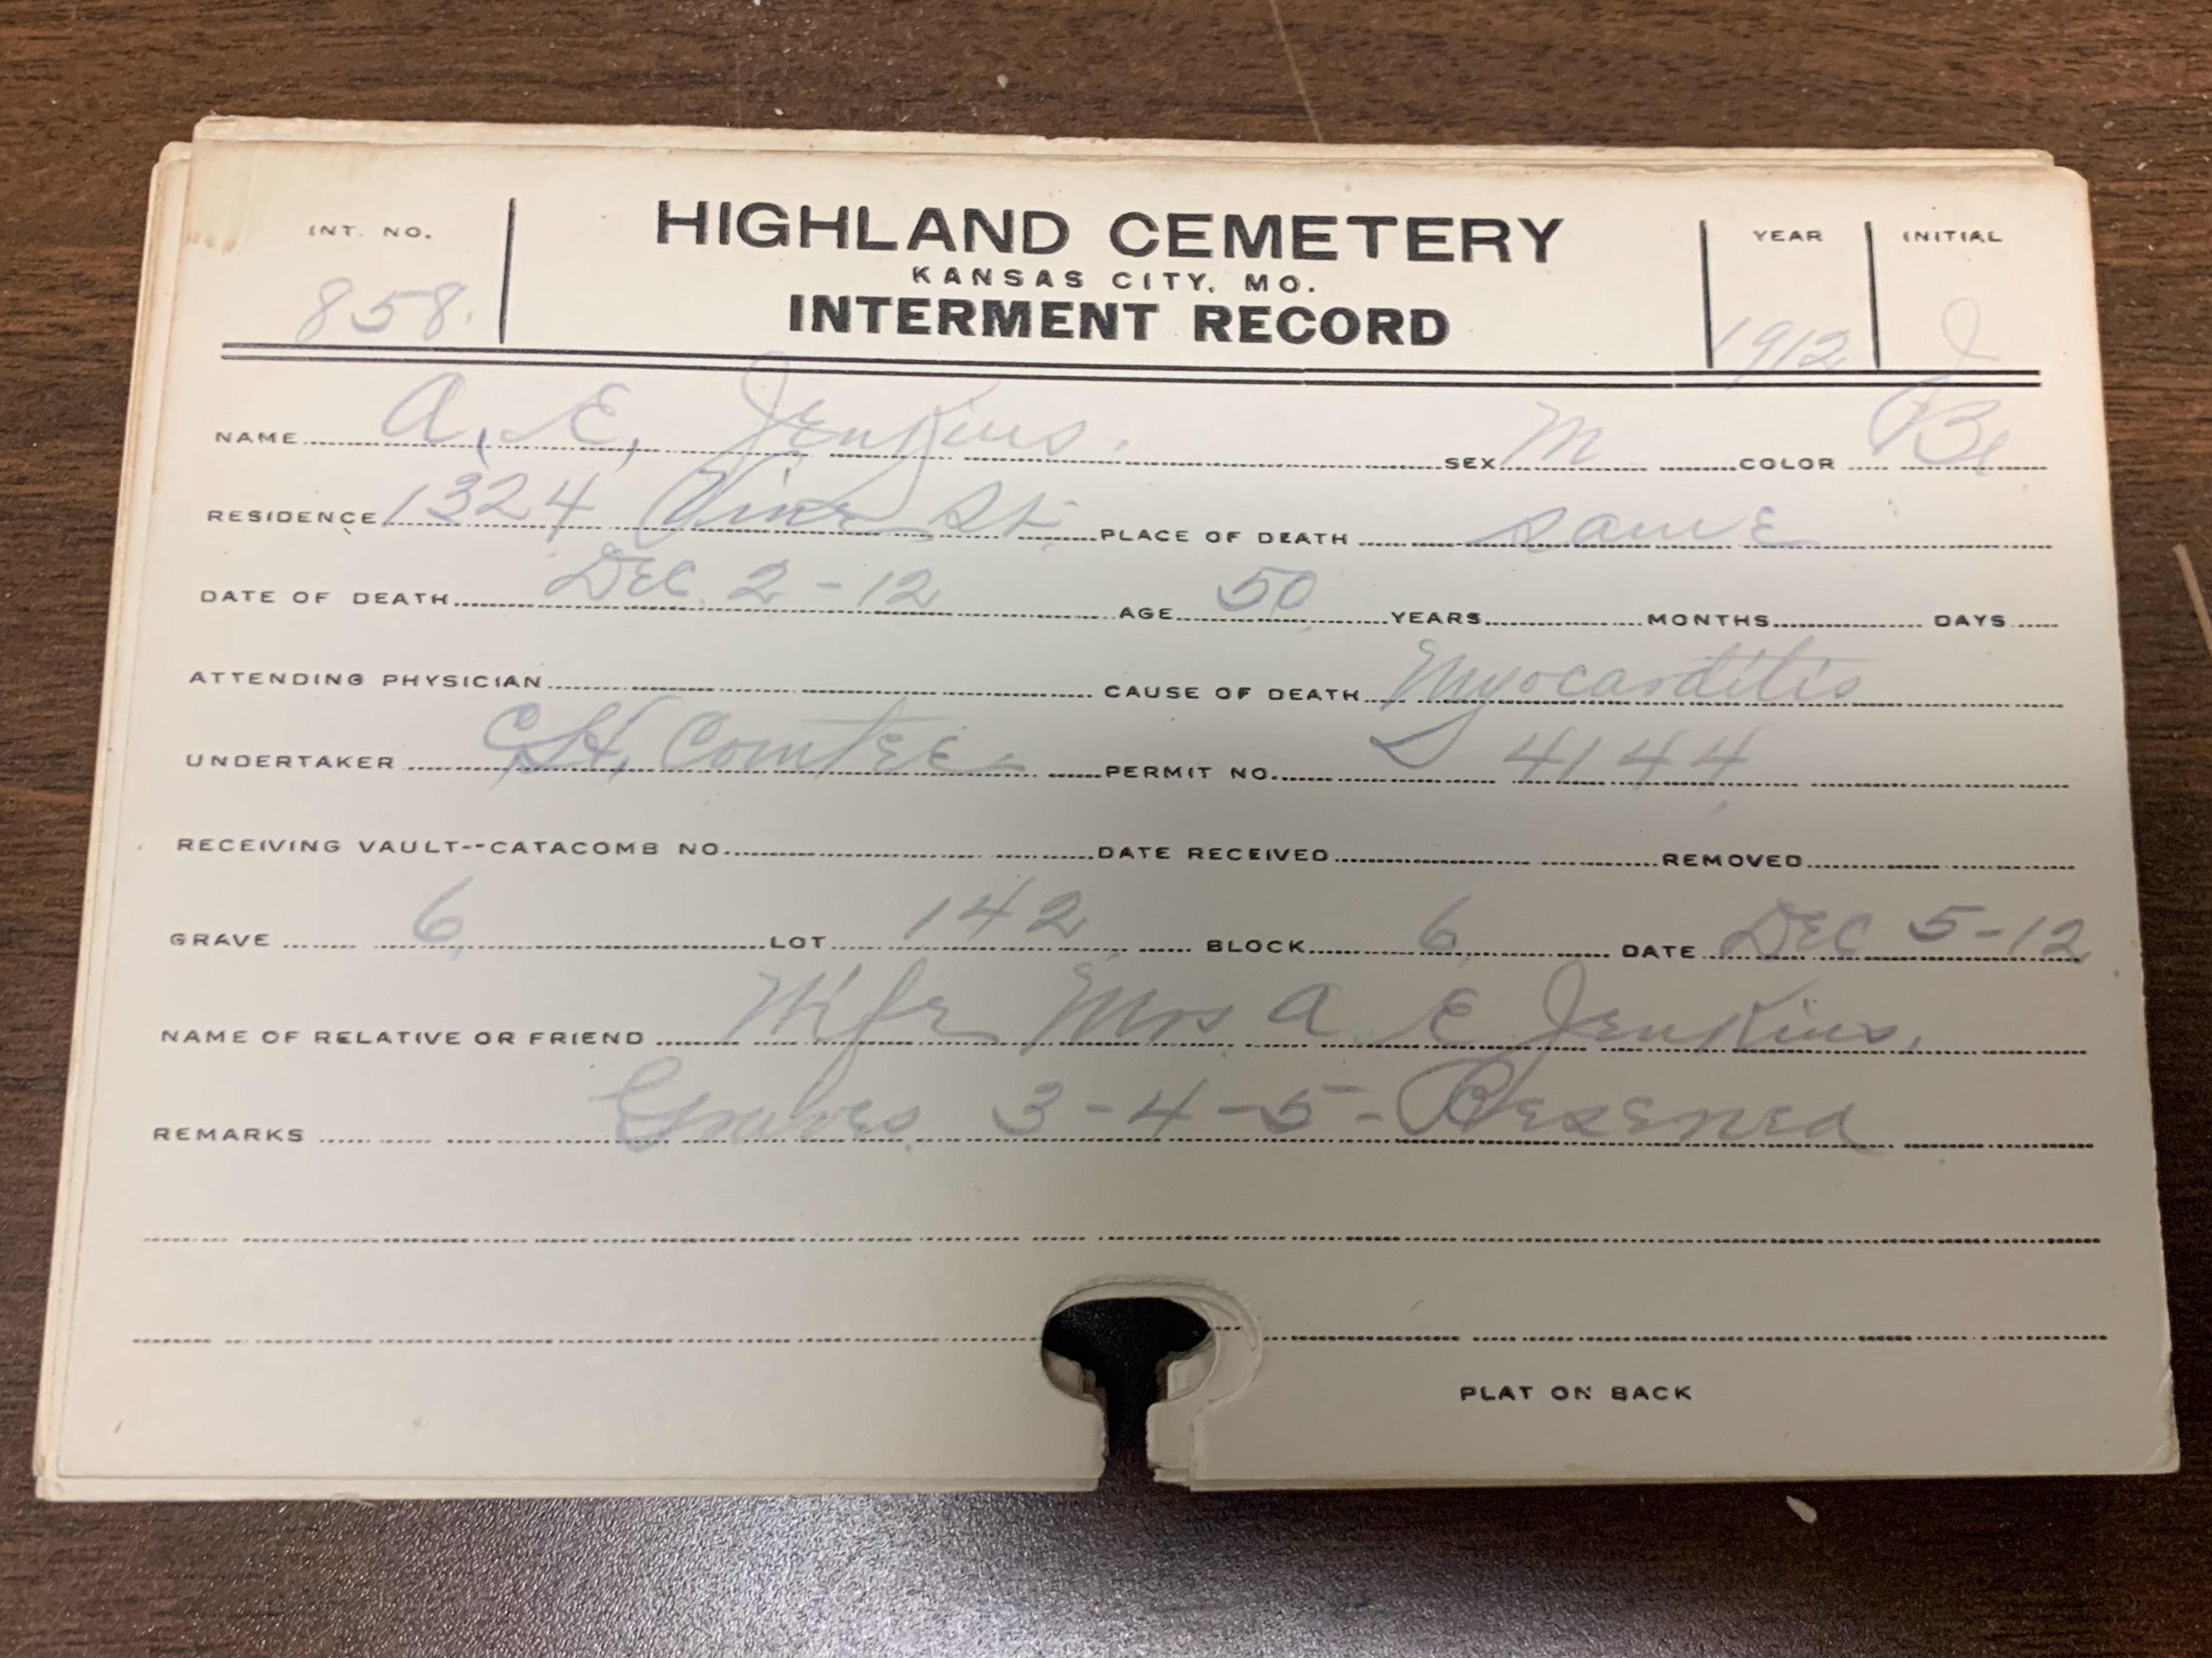 INT. NO. HIGHLAND CEMETERY YEAR INITIAL
KANSAS CITY, MO.
858. INTERMENT RECORD 1912 J
NAME A. E. Jenkins. SEX M COLOR Bl
RESIDENCE 1324 Vine St. PLACE OF DEATH same
DATE OF DEATH Dec. 2-12 AGE 50 YEARS MONTHS DAYS
ATTENDING PHYSICIAN CAUSE OF DEATH Myocarditis
UNDERTAKER C.H. Countee PERMIT NO. S 4144
RECEIVING VAULT--CATACOMB NO. DATE RECEIVED REMOVED
GRAVE 6 LOT 142 BLOCK 6 DATE Dec 5-12
NAME OF RELATIVE OR FRIEND Wife Mrs A E Jenkins.
REMARKS Graves 3-4-5- Reserved
PLAT ON BACK